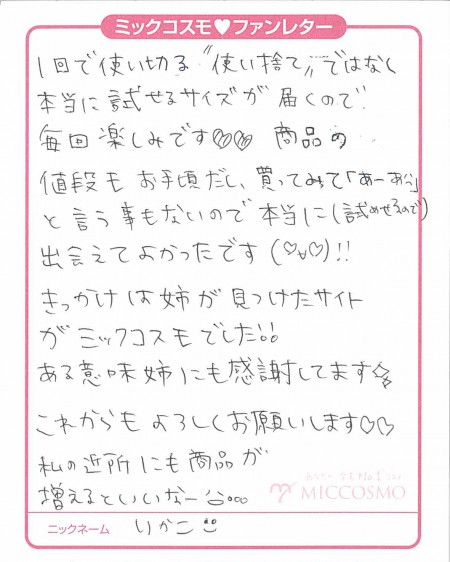 ミックコスモ♥ファンレター
1回で使い切る〝使い捨て〟ではなく
本当に試せるサイズが届くので
毎回楽しみです♡♡ 商品の
値段もお手頃だし、買ってみて「あーあ…」
と言う事もないので本当に(試めせるので)
出会えてよかったです(♡∀♡)!!
きっかけは姉が見つけたサイト
がミックコスモでした!!
ある意味姉にも感謝してます☆
これからもよろしくお願いします♡♡
私の近所にも商品が
増えるといいなー
MICCOSMO
ニックネーム りかこ